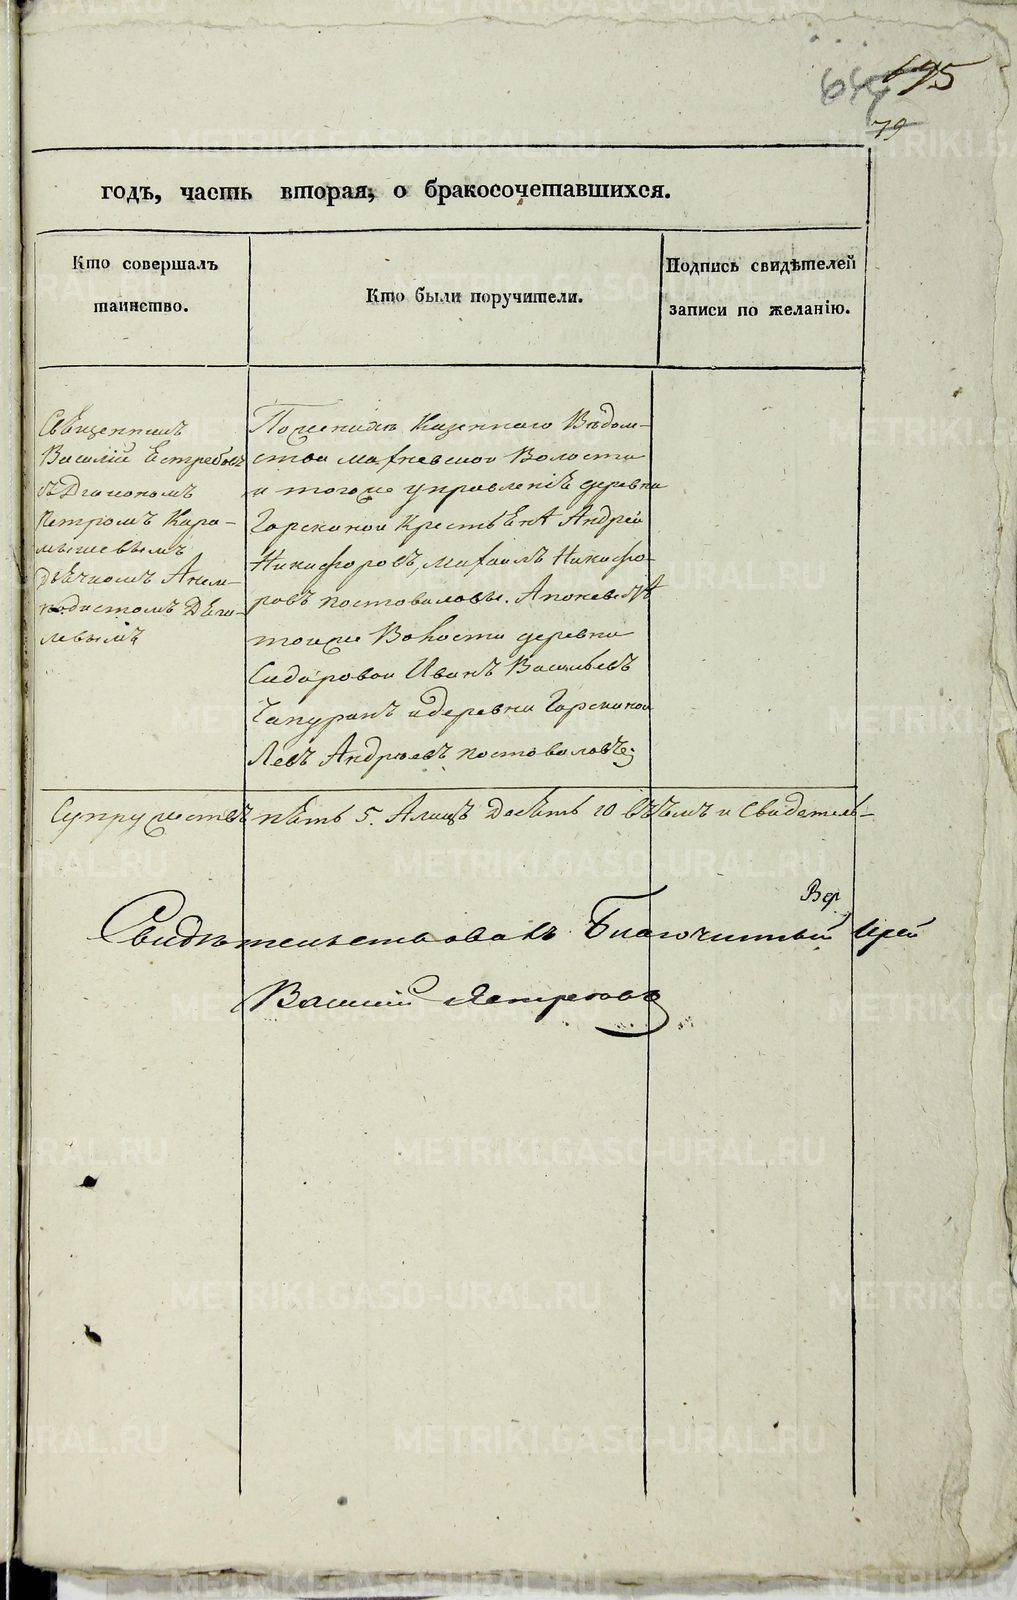 695
644
79
годъ, часть вторая, о бракосочетавшихся.
Кто совершалъ
таинство.
Кто были поручители.
Подпись свидѣтелей
записи по желанію.
Свещенникъ
Василій Естребовъ
съ Диакономъ
Петромъ Кара-
мышевымъ
дьячкомъ
Поженихѣ Казеннаго Вѣдом-
ства Махневской Волости
и тогоже управленіѣ деревни
Горскиной Крестьенѣ Андрей
Никифоровъ, Михаилъ Никифо-
ровъ постоваловы. Апоневѣстѣ
тоиже Волости деревни
Сидоровой Иванъ Васильевъ
идеревни Горскиной
Левъ Андрѣевъ постоваловъ.
Супружествъ пѣть 5. Алицъ десѣть 10 въѣмъ и Свидетель-
Свидѣтельствовалъ Благочинный Іерей
Василій Ястребовъ
METRIKI.GASO-URAL.RU